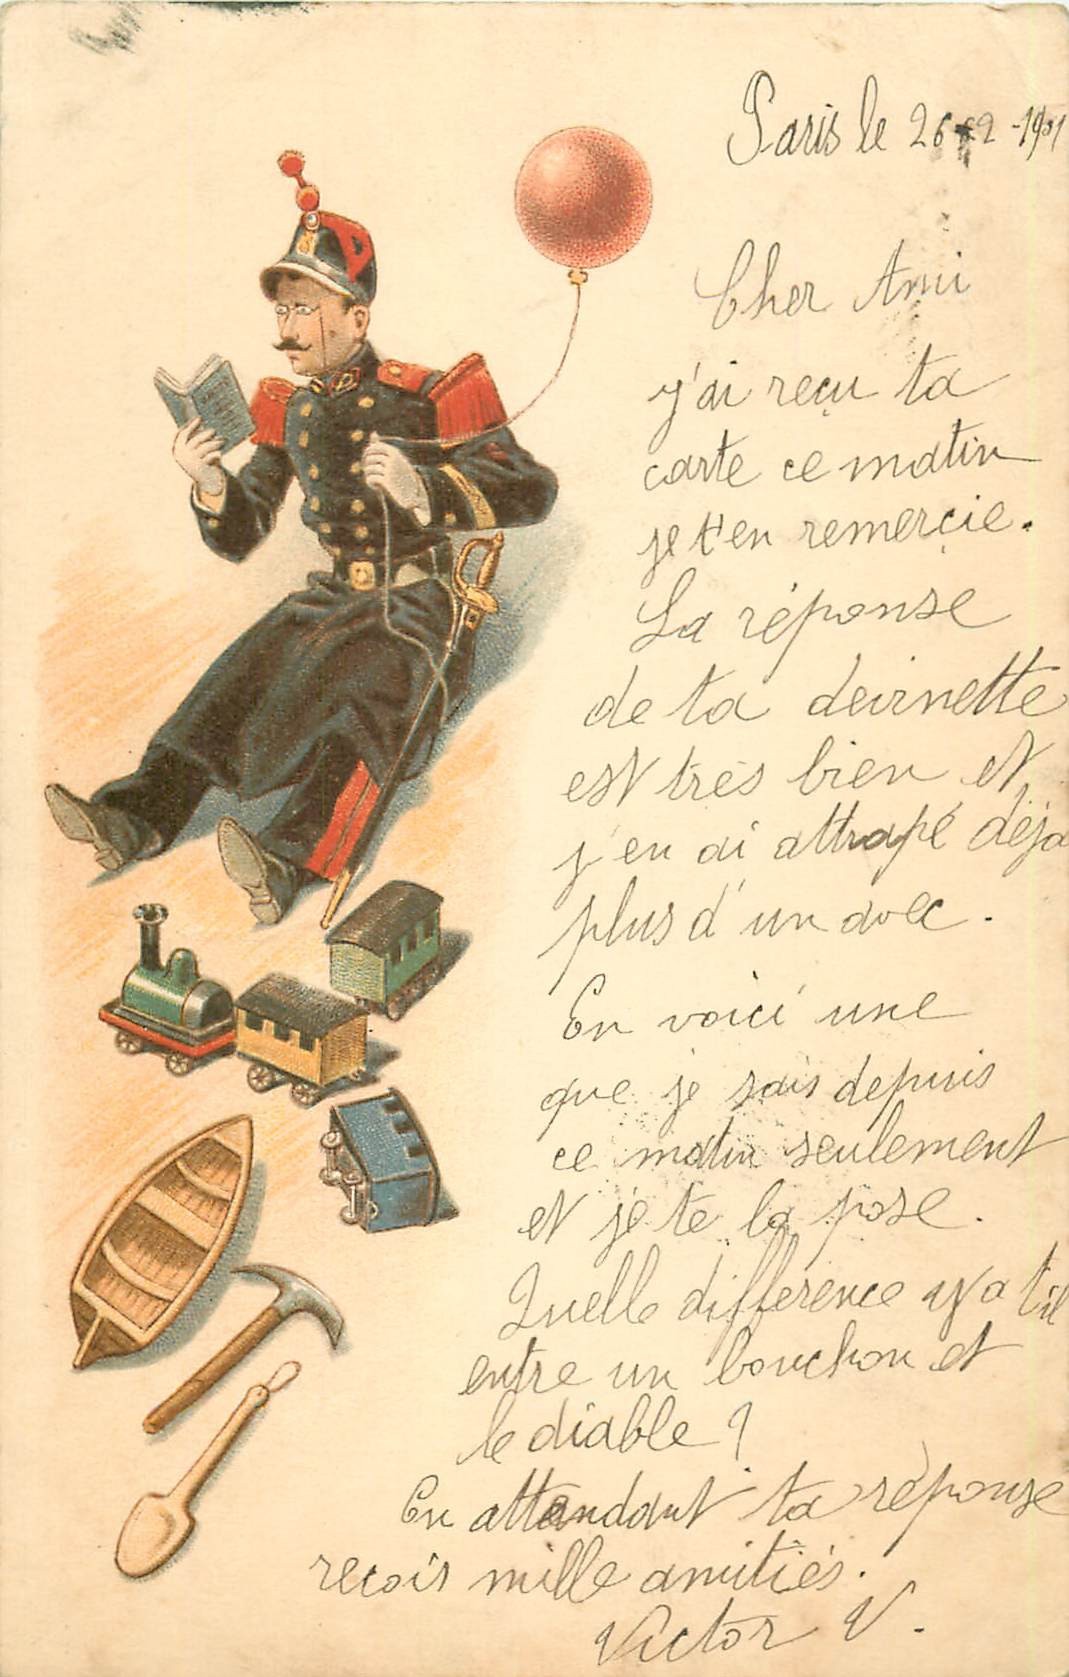 Paris le 26-12-1901
Cher Ami
j'ai reçu ta
carte ce matin
je t'en remerçie.
La réponse
de ta deirnette
est très bien et
j'en ai attrapé déja
plus d'un avec.
En voici une
que je sais depuis
ce matin seulement
et je te la pose.
Quelle différence y a t'il
entre un bouchon et
le diable ?
En attendant ta réponse
reçois mille amitiés.
Victor V.